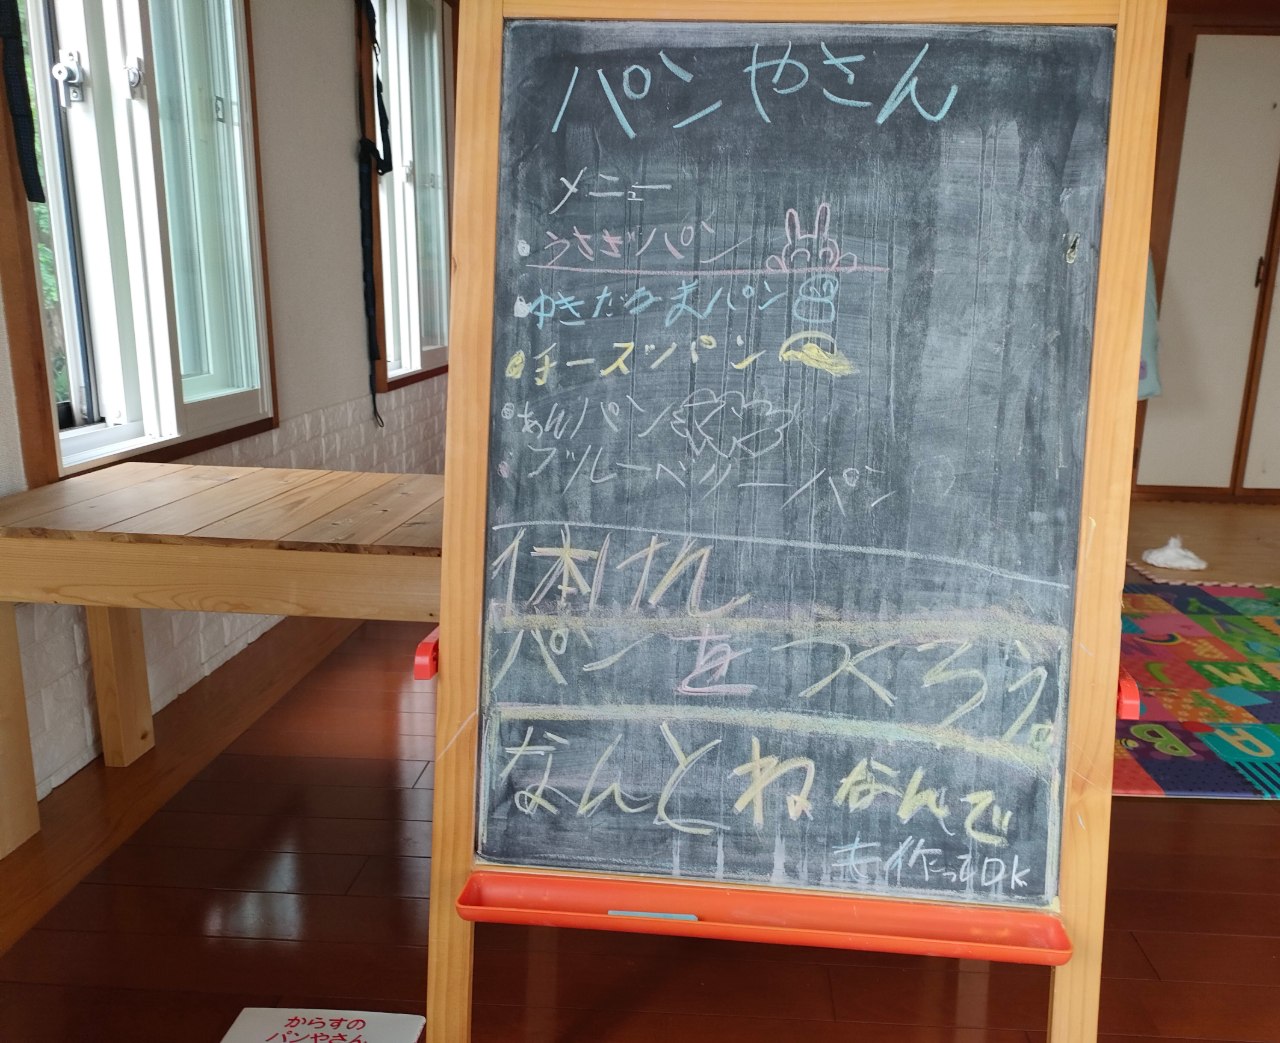 パンやさん
メニュー
うさぎパン
ゆきだるまパン
チーズパン
あんパン
ブルーベリーパン
体けん
パンをつくろう。
なんとねなんで
も作ってOK
からすの
パンやさん
A
B
M